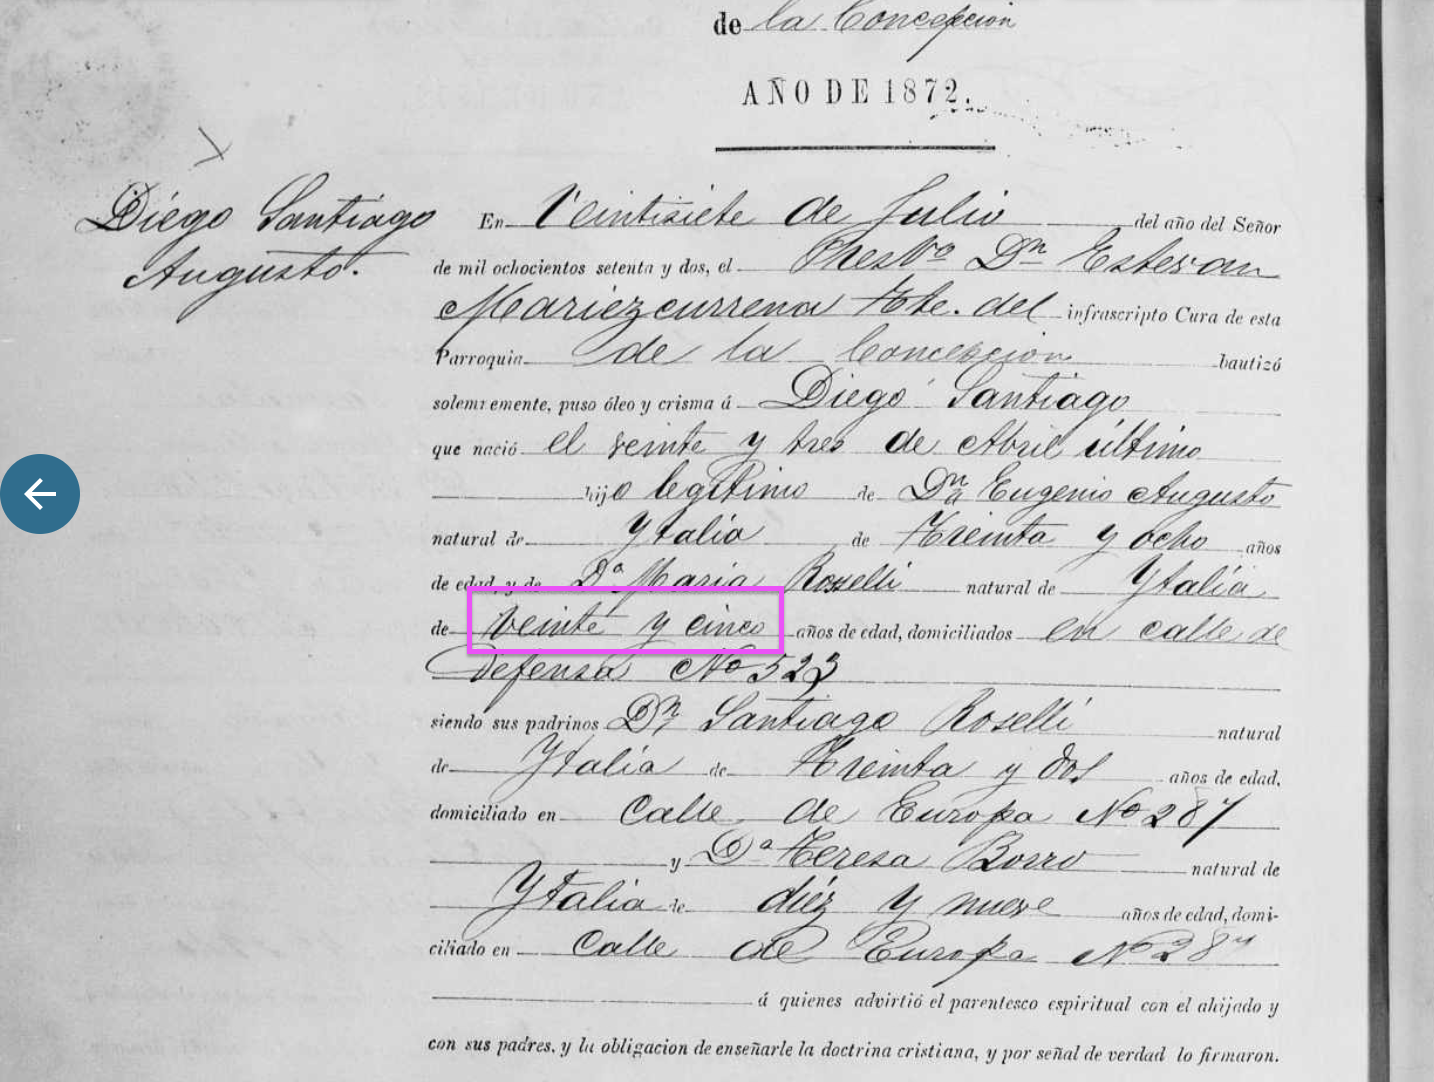 de la Concepcion
AÑO DE 1872.
Diego Santiago
Augusto.
En Veintisiete de Julio del año del Señor
de mil ochocientos setenta y dos, el Presbo Dn Estevan
Mariezcurrena Tte. del infrascripto Cura de esta
Parroquia de la Concepcion bautizó
solemnemente, puso óleo y crisma á Diego Santiago
que nació el veinte y tres de Abril último
hijo legitimo de Dn Eugenio Augusto
natural de Ytalia de Treinta y ocho años
de edad, y de Da Maria Rosselli natural de Ytalia
de veinte y cinco años de edad, domiciliados en calle de
Defensa No 523
siendo sus padrinos Dn Santiago Roselli natural
de Ytalia de Treinta y dos años de edad,
domiciliado en Calle de Europa No 287
y Da Teresa Borro natural de
Ytalia de diéz y nueve años de edad, domi-
ciliado en Calle de Europa No 287
á quienes advirtió el parentesco espiritual con el ahijado y
con sus padres, y la obligacion de enseñarle la doctrina cristiana, y por señal de verdad lo firmaron.